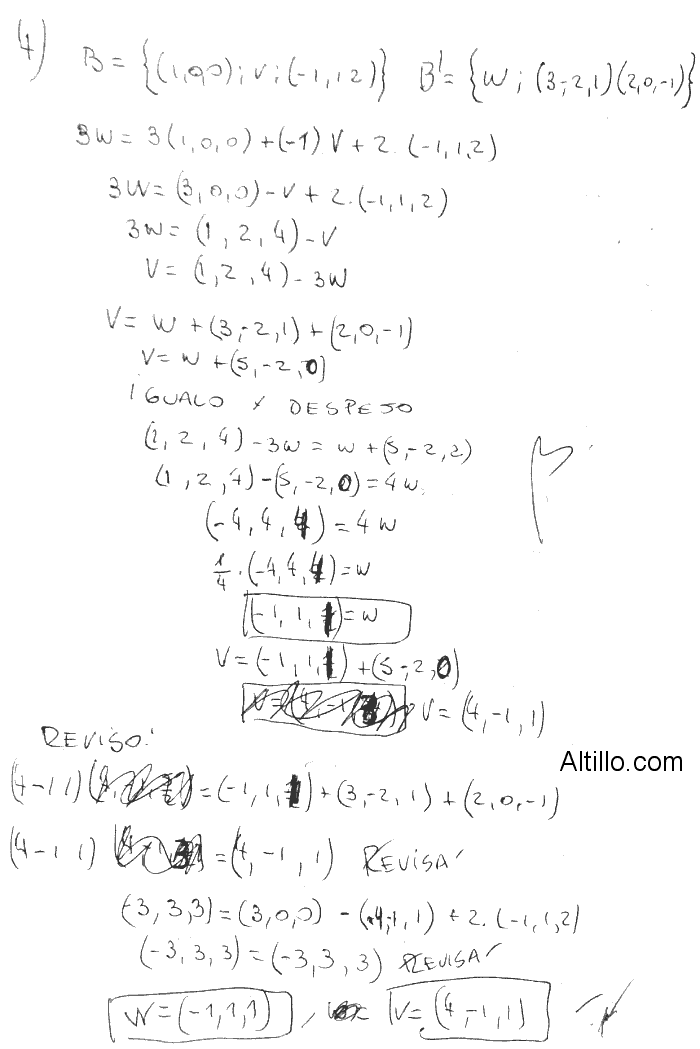 4) B = {(1,0,0); V; (-1,1,2)} B' = {W; (3,-2,1)(2,0,-1)}
3W = 3(1,0,0) + (-1) V + 2. (-1,1,2)
3W = (3,0,0) - V + 2.(-1,1,2)
3W = (1,2,4) - V
V = (1,2,4) - 3W
V = W + (3,-2,1) + (2,0,-1)
V = W + (5,-2,0)
IGUALO Y DESPEJO
(1,2,4) - 3W = W + (5,-2,2)
(1,2,4) - (5,-2,0) = 4W
(-4,4,4) = 4W
1/4 . (-4,4,4) = W
(-1,1,1) = W
V = (-1,1,1) + (5-2,0)
V = (4,-1,1)
REVISO:
(4-11) = (-1,1,1) + (3,-2,1) + (2,0,-1)
Altillo.com
(4-11) = (4,-1,1) REVISA
(3,3,3) = (3,0,0) - (4,-1,1) + 2.(-1,1,2)
(-3,3,3) = (-3,3,3) REVISA
W = (-1,1,1) , V = (4,-1,1)